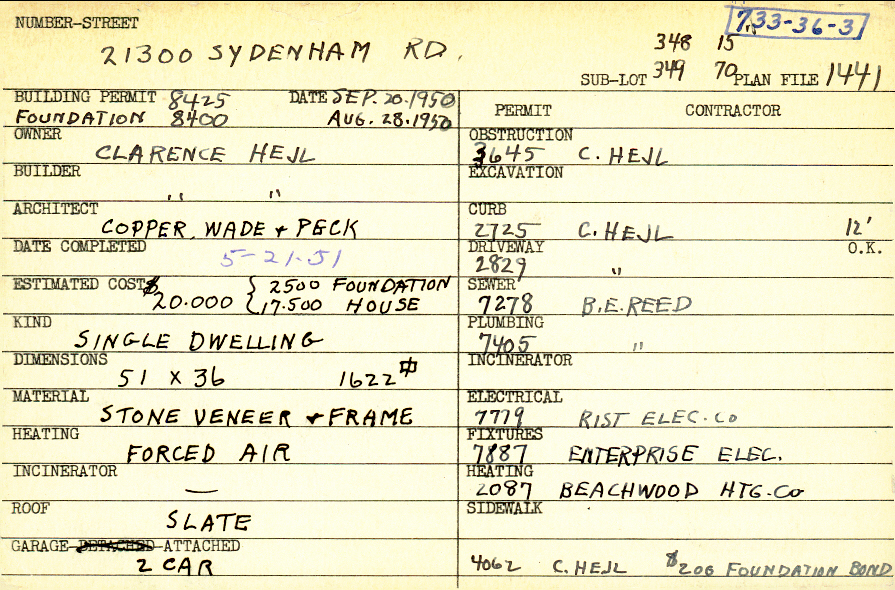 NUMBER-STREET
733-36-3
21300 SYDENHAM RD.
348 15
SUB-LOT 349 70 PLAN FILE 1441
BUILDING PERMIT 8425 DATE SEP. 20. 1950
FOUNDATION 8400 AUG. 28. 1950
OWNER
CLARENCE HEJL
BUILDER
" "
ARCHITECT
COPPER, WADE + PECK
DATE COMPLETED
5-21-51
ESTIMATED COST $ { 2500 FOUNDATION
20.000 { 17.500 HOUSE
KIND
SINGLE DWELLING
DIMENSIONS
51 X 36 1622 #
MATERIAL
STONE VENEER + FRAME
HEATING
FORCED AIR
INCINERATOR
—
ROOF
SLATE
GARAGE-DETACHED-ATTACHED
2 CAR
PERMIT CONTRACTOR
OBSTRUCTION
3645 C. HEJL
EXCAVATION
CURB
2725 C. HEJL 12'
DRIVEWAY O.K.
2829 "
SEWER
7278 B.E. REED
PLUMBING
7405 "
INCINERATOR
ELECTRICAL
7779 RIST ELEC. CO
FIXTURES
7887 ENTERPRISE ELEC.
HEATING
2087 BEACHWOOD HTG. CO
SIDEWALK
4062 C. HEJL $200 FOUNDATION BOND